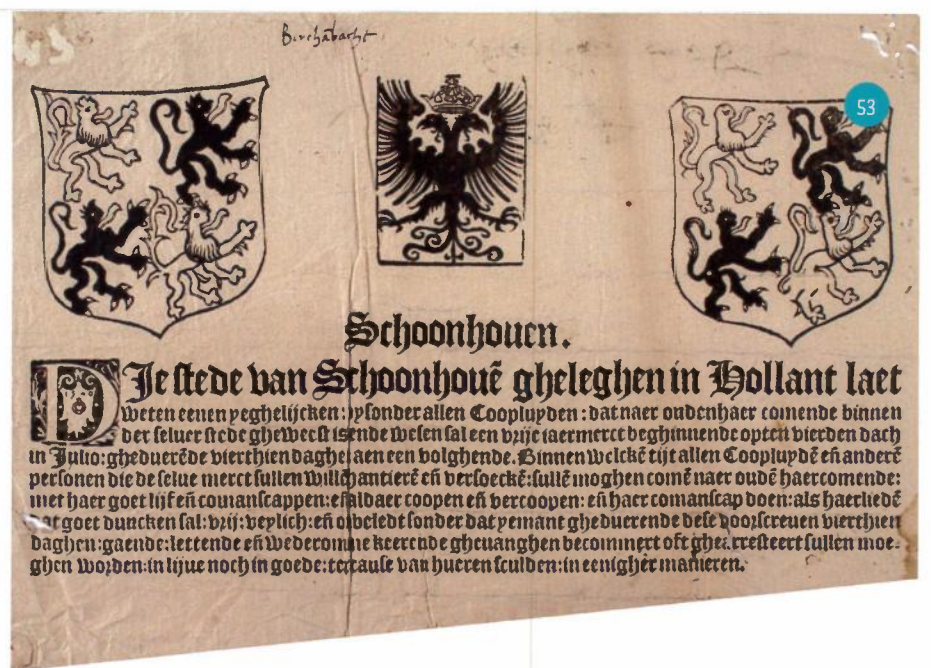 53
Schoonhouen.
DJe stede van Schoonhouē gheleghen in Hollant laet
weten eenen yeghelijcken: bysonder allen Coopluyden: dat naer ouden haer comende binnen
der seluer stede gheweest is ende wesen sal een vrije iaermerct beghinnende opten vierden dach
in Julio: gheduerēde vierthien daghe aen een volghende. Binnen welckē tijt allen Coopluydē eñ anderē
personen die de selue merct sullen willē hantierē eñ versoeckē: sullē moghen comē naer oudē haercomende:
met haer goet lijf eñ comanscappen: eñ aldaer coopen eñ vercoopen: eñ haer comanscap doen: als haerliedē
dat goet duncken sal: vrij: veylich: eñ onbeledt sonder dat yemant gheduerende dese voorscreuen vierthien
daghen: gaende: lettende eñ wederomme keerende gheuanghen becommert oft ghearresteert sullen moe-
ghen worden: in lijue noch in goede: ter cause van hueren sculden: in eenigher manieren.